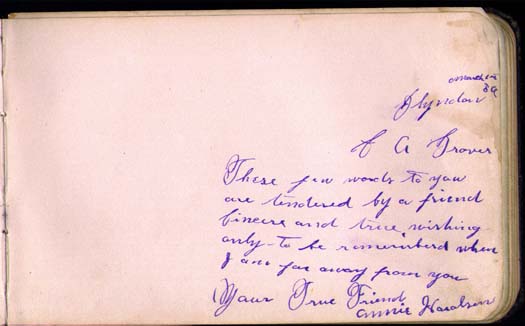 March
89
Glyndon
C A Grover
These few words to you
are tendered by a friend
Sincere and true, wishing
only to be rememberd when
I am far away from you
Your True Friend
Annie